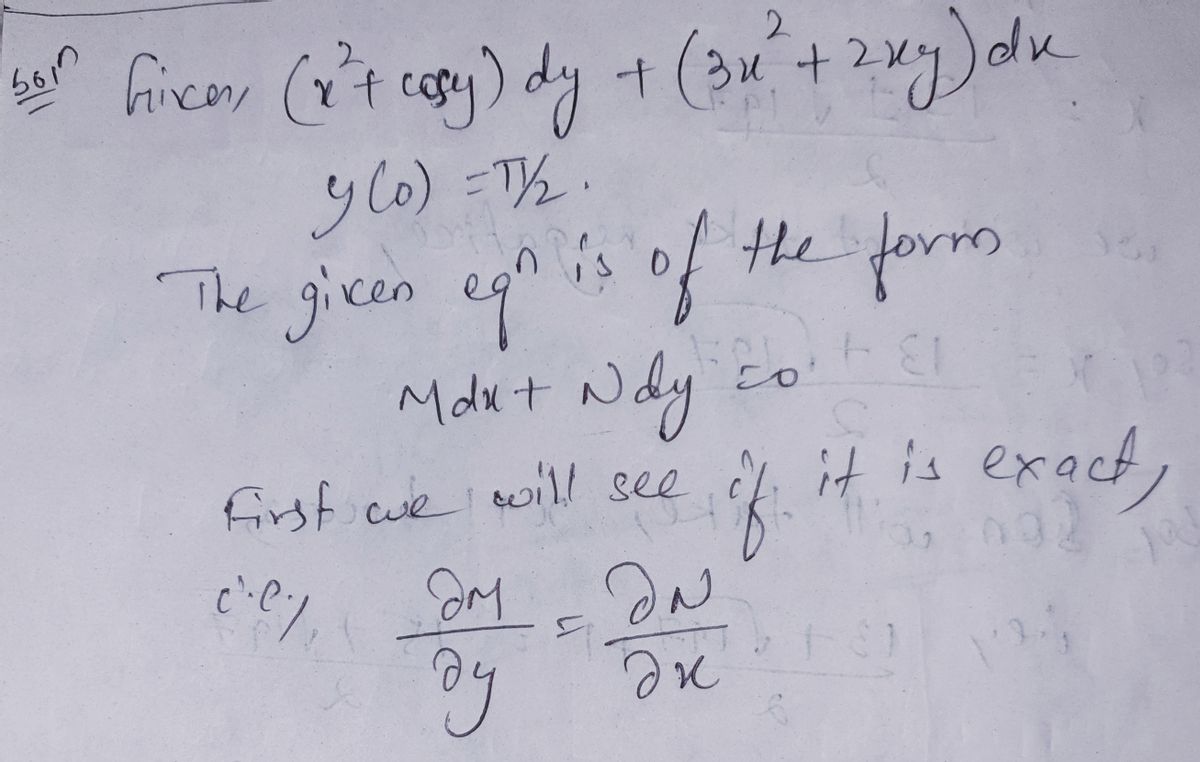 Solⁿ Given, (x² + cosy) dy + (3x² + 2xy) dx
y(0) = π/2.
The given eqⁿ is of the form
Mdx + Ndy = 0
First we will see if it is exact,
i.e., ∂M/∂y = ∂N/∂x